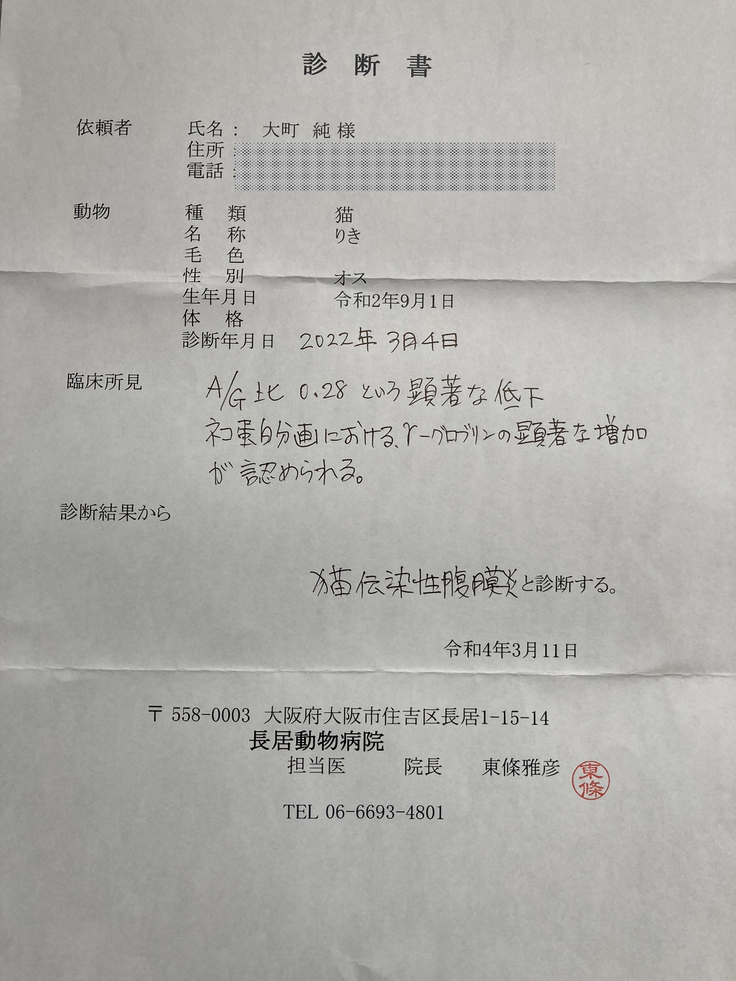 診断書
依頼者 氏名: 大町 純 様
住所:
電話:
動物 種類 猫
名称 りき
毛色
性別 オス
生年月日 令和2年9月1日
体格
診断年月日 2022年 3月4日
臨床所見 A/G比 0.28 という顕著な低下
ネコ蛋白分画における、γーグロブリンの顕著な増加
が認められる。
診断結果から
猫伝染性腹膜炎と診断する。
令和4年3月11日
〒558-0003 大阪府大阪市住吉区長居1-15-14
長居動物病院
担当医 院長 東條雅彦 東條
TEL 06-6693-4801